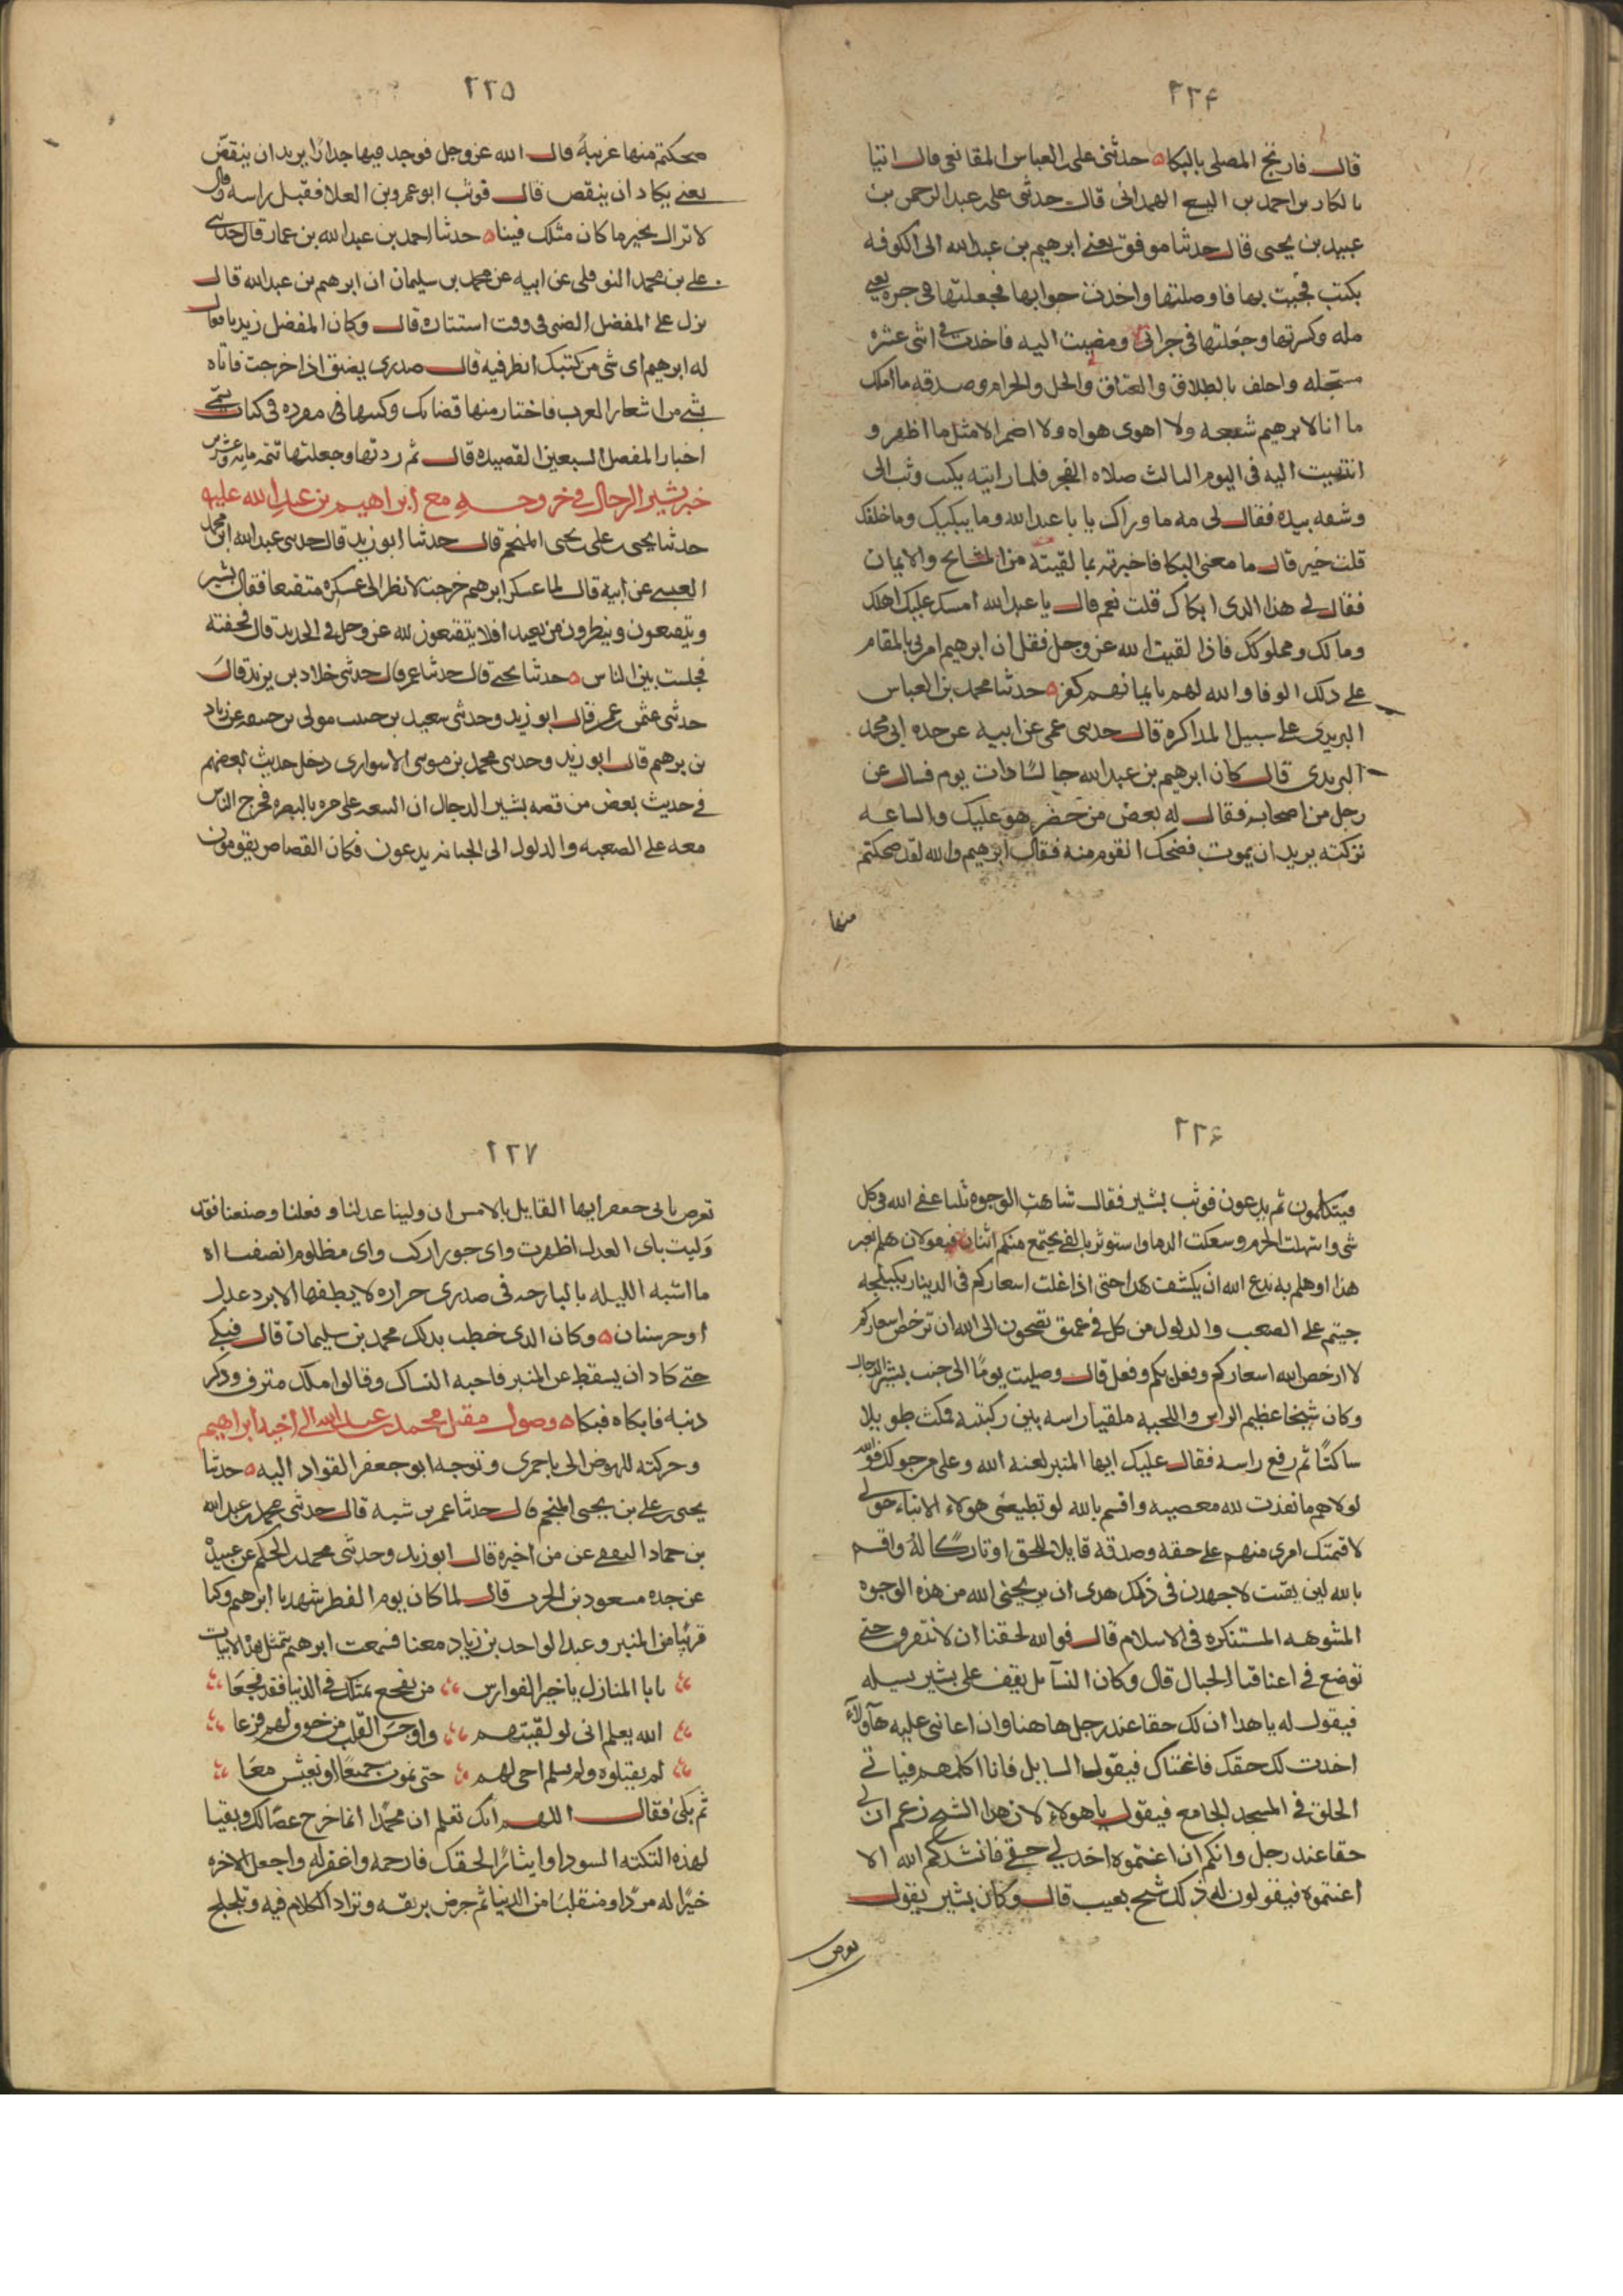 ٢٢٤
قال فارتج المصلى بالبكا ه حدثنى على العباس المقانعى قال انبا
بالكار بن احمد بن اليسع الهمدانى قال حدثنى على عبد الرحمن بن
عبيد بن يحيى قال حدثنا موفق بعثنى ابرهيم بن عبد الله الى الكوفه
بكتب فجيت بها فاوصلتها واخذت جوابها فجعلتها فى جره يعنى
مله وكسرتها وجعلتها فى جرابى ومضيت اليه فاخذت فى اثنى عشره
مستحله واحلف بالطلاق والعتاق والحل والحرام وصدقه ما املك
ما انا لابرهيم شيعه ولا اهوى هواه ولا اضمر الا مثل ما اظهر و
انتهيت اليه فى اليوم الثالث صلاه الفجر فلما رايته بكيت وثب الى
وشفه بيده فقال لى مه ما وراك يا با عبد الله وما يبكيك وما خلفك
قلت خير قال ما معنى البكا فاخبرته بما لقيته من المشايخ والايمان
فقال لى هذا الذى ابكاك قلت نعم قال يا عبد الله امسك عليك اهلك
ومالك ومملوكك فاذا لقيت الله عز وجل فقل ان ابرهيم امرنى بالمقام
على ذلك الوفا والله لهم بايمانهم كفر ه حدثنا محمد بن العباس
اليزيدى على سبيل المذاكره قال حدثنى عمى عن ابيه عن جده ابى محمد
اليزيدى قال كان ابرهيم بن عبد الله جالسا ذات يوم فسال عن
رجل من اصحابه فقال له بعض من حضر هو عليك والساعه
تركته يريد ان يموت فضحك القوم منه فقال ابرهيم والله لقد ضحكتم
منها
٢٢٥
ضحكتم منها عربية قال الله عز وجل فوجد فيها جدارا يريد ان ينقض
يعنى يكاد ان ينقض قال فوثب ابو عمرو بن العلا فقبل راسه وقال
لا تزال بخير ما كان مثلك فينا ه حدثنا احمد بن عبد الله بن عمار قال حدثنى
على بن محمد النوفلى عن ابيه عن محمد بن سليمان ان ابرهيم بن عبد الله قال
نزل على المفضل الضبى فى وقت استتاره قال وكان المفضل زيديا فقال
له ابرهيم اى شى من كتبك انظر فيه قال صدرى يضيق اذا خرجت فاتاه
بشى من اشعار العرب فاختار منها قصايد وكتبها فى مفرده فى كتاب سمى
اختيار المفضل السبعين القصيده قال ثم ردتها وجعلتها تتمه مايه وعشرين
خبر بشير الرحال فى خروجه مع ابراهيم بن عبد الله عليه
حدثنا يحيى على يحيى المنجم قال حدثنا ابو زيد قال حدثنى عبد الله ابن محمد
العبسى عن ابيه قال لما عسكر ابرهيم خرجت لانظر الى عسكره متقنعا فقال بشير
ويتقنعون وينظرون من بعيد افلا يتقنعون لله عز وجل فى الحديد قال فخفته
فجلست بين الناس ه حدثنا يحيى قال حدثنا عمر قال حدثنى خلاد بن يزيد قال
حدثنى عثمن عمر قال ابو زيد وحدثنى سعيد بن حبيب مولى بن حنيفه عن زياد
بن برهم قال ابو زيد وحدثنى محمد بن موسى الاسوارى دخل حديث بعضهم
فى حديث بعض من قصه بشير الدجال ان السعر غلى مره بالبصره فخرج الناس
معه على الصعبه والدلول الى الجبانه يدعون فكان القصاص يقومون
٢٢٦
فيتكلمون ثم يدعون فوثب بشير فقال شاهت الوجوه ثلثا عفى الله فى كل
شى وانتهكت الحرم وسفكت الدما واستوثر بالفى يجتمع منكم اثنان فيقولان هلم نغير
هذا او هلم به ندع الله ان يكشف هذا حتى اذا غلت اسعاركم فى الدينار بكيلجه
جيتم على الصعب والدلول من كل فج عميق تصيحون الى الله ان ترخص اسعاركم
لا ارخص الله اسعاركم وفعل بكم وفعل قال وصليت يوما الى جنب بشير الدجال
وكان شيخا عظيم الراس واللحيه ملقيا راسه بين ركبتيه فمكث طويلا
ساكتا ثم رفع راسه فقال عليك ايها المنبر لعنه الله وعلى من حولك فوالله
لولاهم ما نفذت لله معصيه واقسم بالله لو تطيعنى هولاء الابناء حولى
لاقمتك امرى منهم على حقه وصدقه قايلا للحق او تاركا له واقسم
بالله لين بقيت لاجهدن فى ذلك جهدى او يريحنى الله من هذه الوجوه
المشوهه المستنكره فى الاسلام قال فوالله لخفنا ان لا نتفرق حتى
توضع فى اعناقنا الحبال قال وكان السايل يقف على بشير يسيله
فيقول له يا هذا ان لك حقا عند رجل هاهنا وان اعاننى عليه هاولاء
اخذت لك حقك فاغناك فيقول السايل فانا اكلمهم فياتى
الحلق فى المسجد الجامع فيقول يا هولاء ان هذا الشيخ زعم ان لى
حقا عند رجل وانكم ان اعنتموه اخذ لى حقى فانشدكم الله الا
اعنتموه فيقولون له ذلك شيخ يعيب قال وكان بشير يقول
يعرض
٢٢٧
يعرض بابى جعفر ايها القايل بالامس ان ولينا عدلنا وفعلنا وصنعنا فقد
وليت باى العدل اظهرت واى جور ازلت واى مظلوم انصفت اه
ما اشبه الليله بالبارحه فى صدرى حراره لا يطفيها الا برد عدل
او حر سنان ه وكان الذى خطب بذلك محمد بن سليمان قال فبكى
حتى كاد ان يسقط عن المنبر فاحبه النساك وقالوا ملك مترف وذكر
ذنبه فابكاه فبكا ه وصول مقتل محمد بن عبد الله الى اخيه ابراهيم
وحركته للنهوض الى باخمرى وتوجه ابو جعفر القواد اليه ه حدثنا
يحيى بن على بن يحيى المنجم قال حدثنا عمر بن شبه قال حدثنى محمد بن عبد الله
بن حماد الثقفى عن من اخبره قال ابو زيد وحدثنى محمد بن الحكم عن عبيده
عن جده مسعود بن الحرث قال لما كان يوم الفطر شهد با ابرهيم وكنا
قريبا من المنبر وعبد الواحد بن زياد معنا فسمعت ابرهيم يتمثل هذه الابيات
يابا المنازل يا خير الفوارس من يفجع بمثلك فى الدنيا فقد فجعا
الله يعلم انى لو لقيتهم واوجس القلب من خوف لهم فزعا
لم يقتلوه ولم يسلم اخى لهم حتى نموت جميعا او نعيش معا
ثم بكى فقال اللهم انك تعلم ان محمدا انما خرج غضبا لك ونفيا
لهذه النكته السودا وايثارا لحقك فارحمه واغفر له واجعل الاخره
خيرا له مردا ومنقلبا من الدنيا ثم جرض بريقه وتراد الكلام فيه وتلجلج